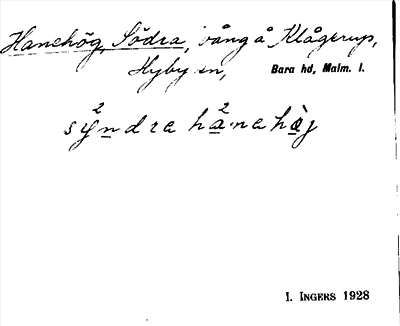 Hanehög, Södra, vång å Klågerup,
Hyby sn, Bara hd, Malm. l.
sy²ndra ha²·nehὰj
I. INGERS 1928